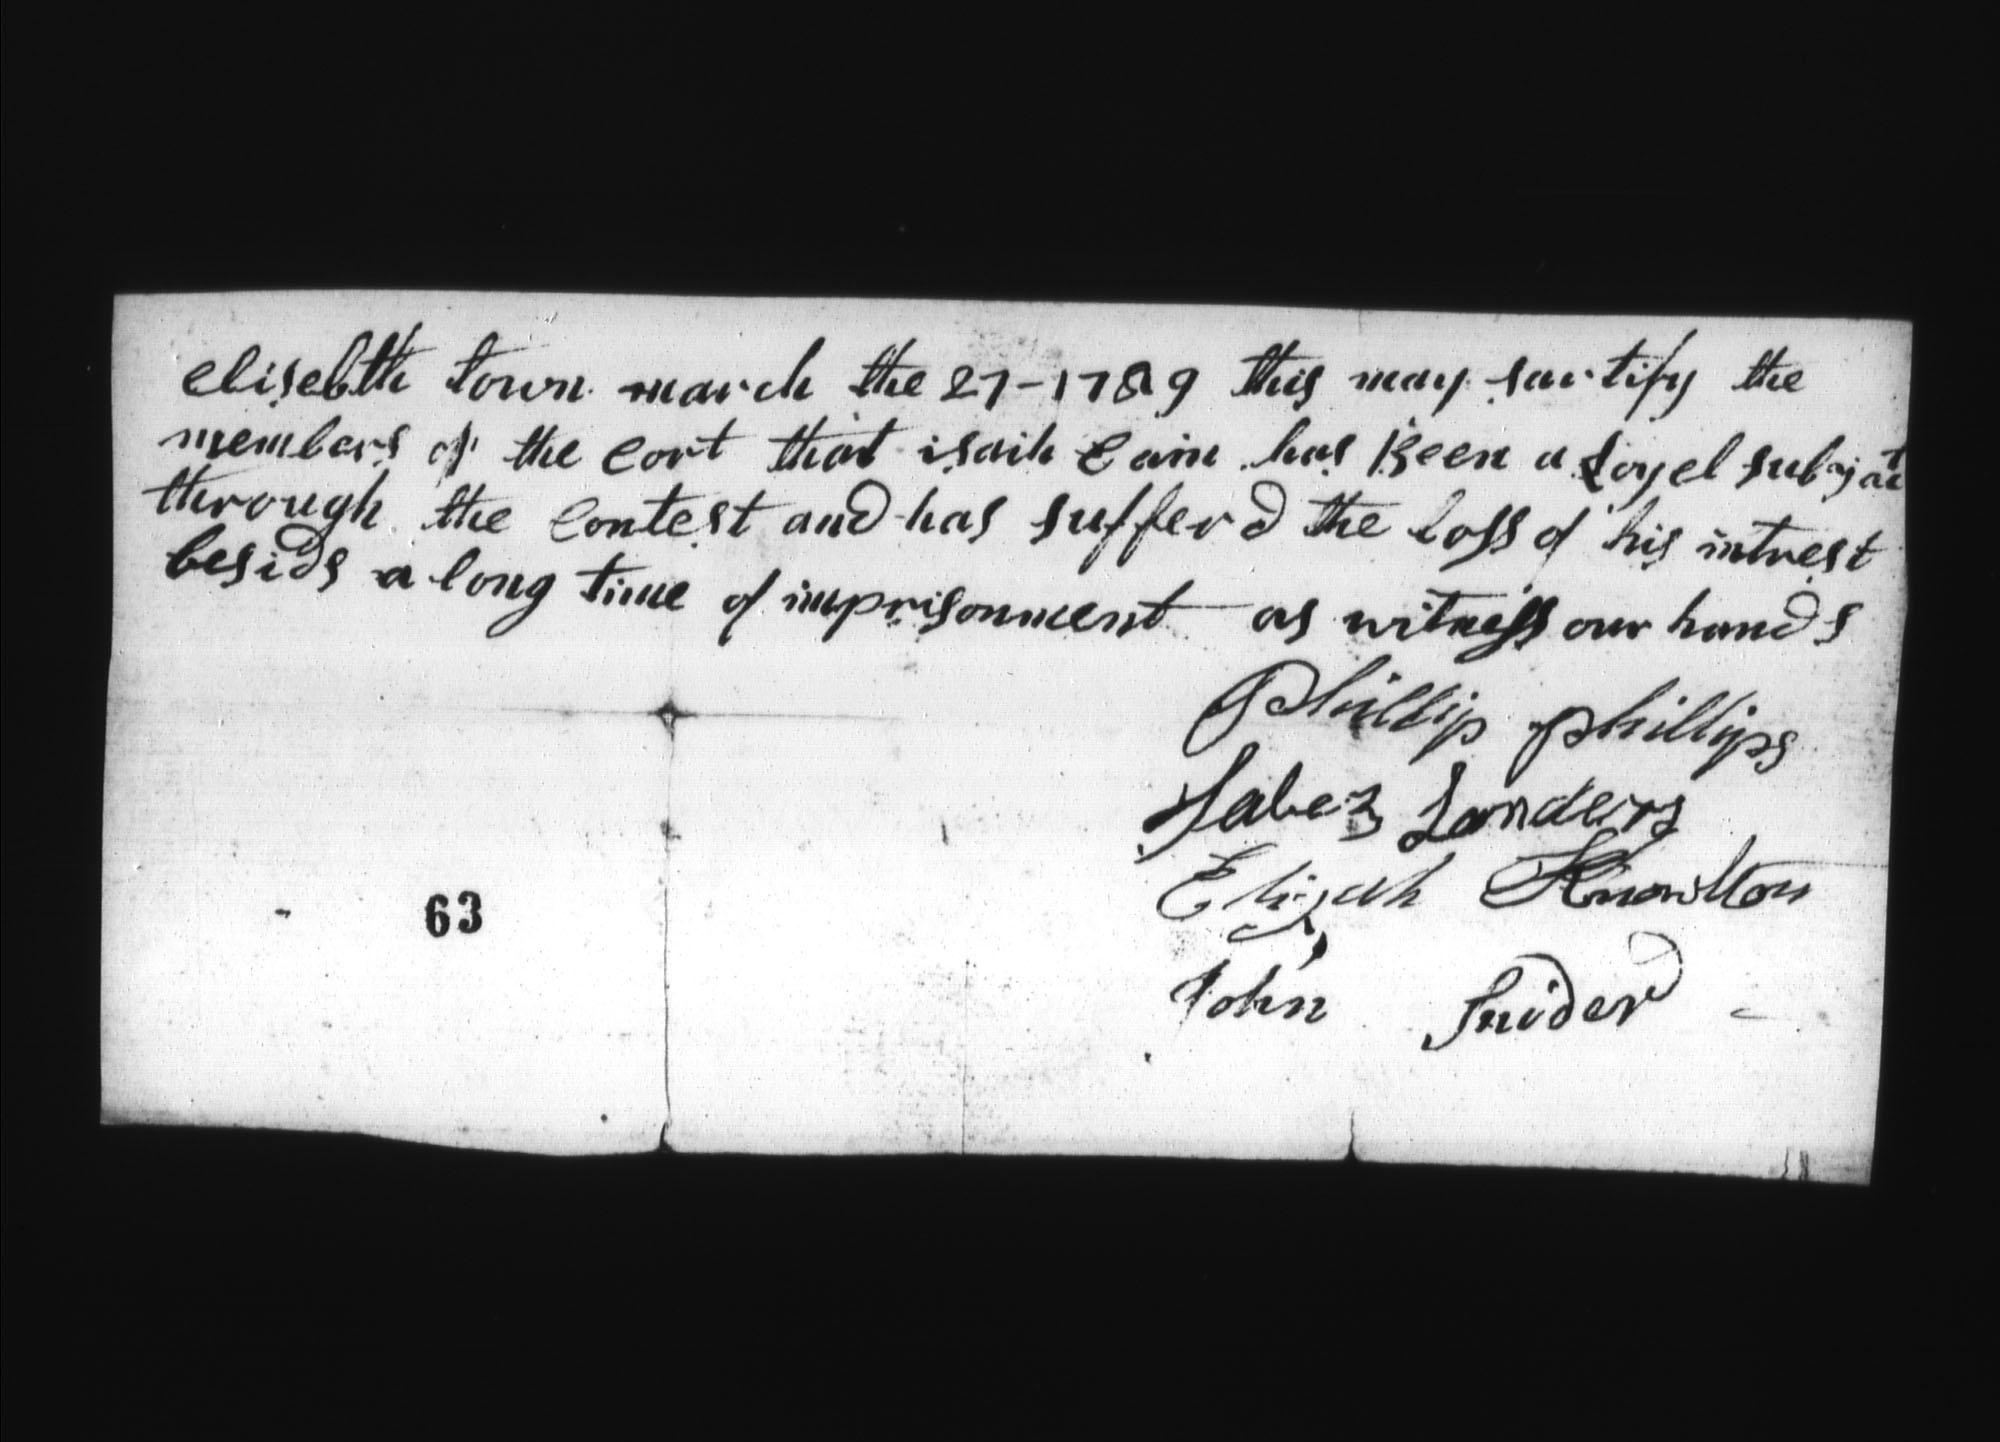 elisebth town march the 27-1789 this may sartify the
members of the cort that isaih Cain has Been a Loyel subjat
through the Contest and has sufferd the loss of his intrest
besids a long time of imprisonment as witness our hands
Phillip Phillips
Jabez Landers
Elijah Knowlton
John Snider
63